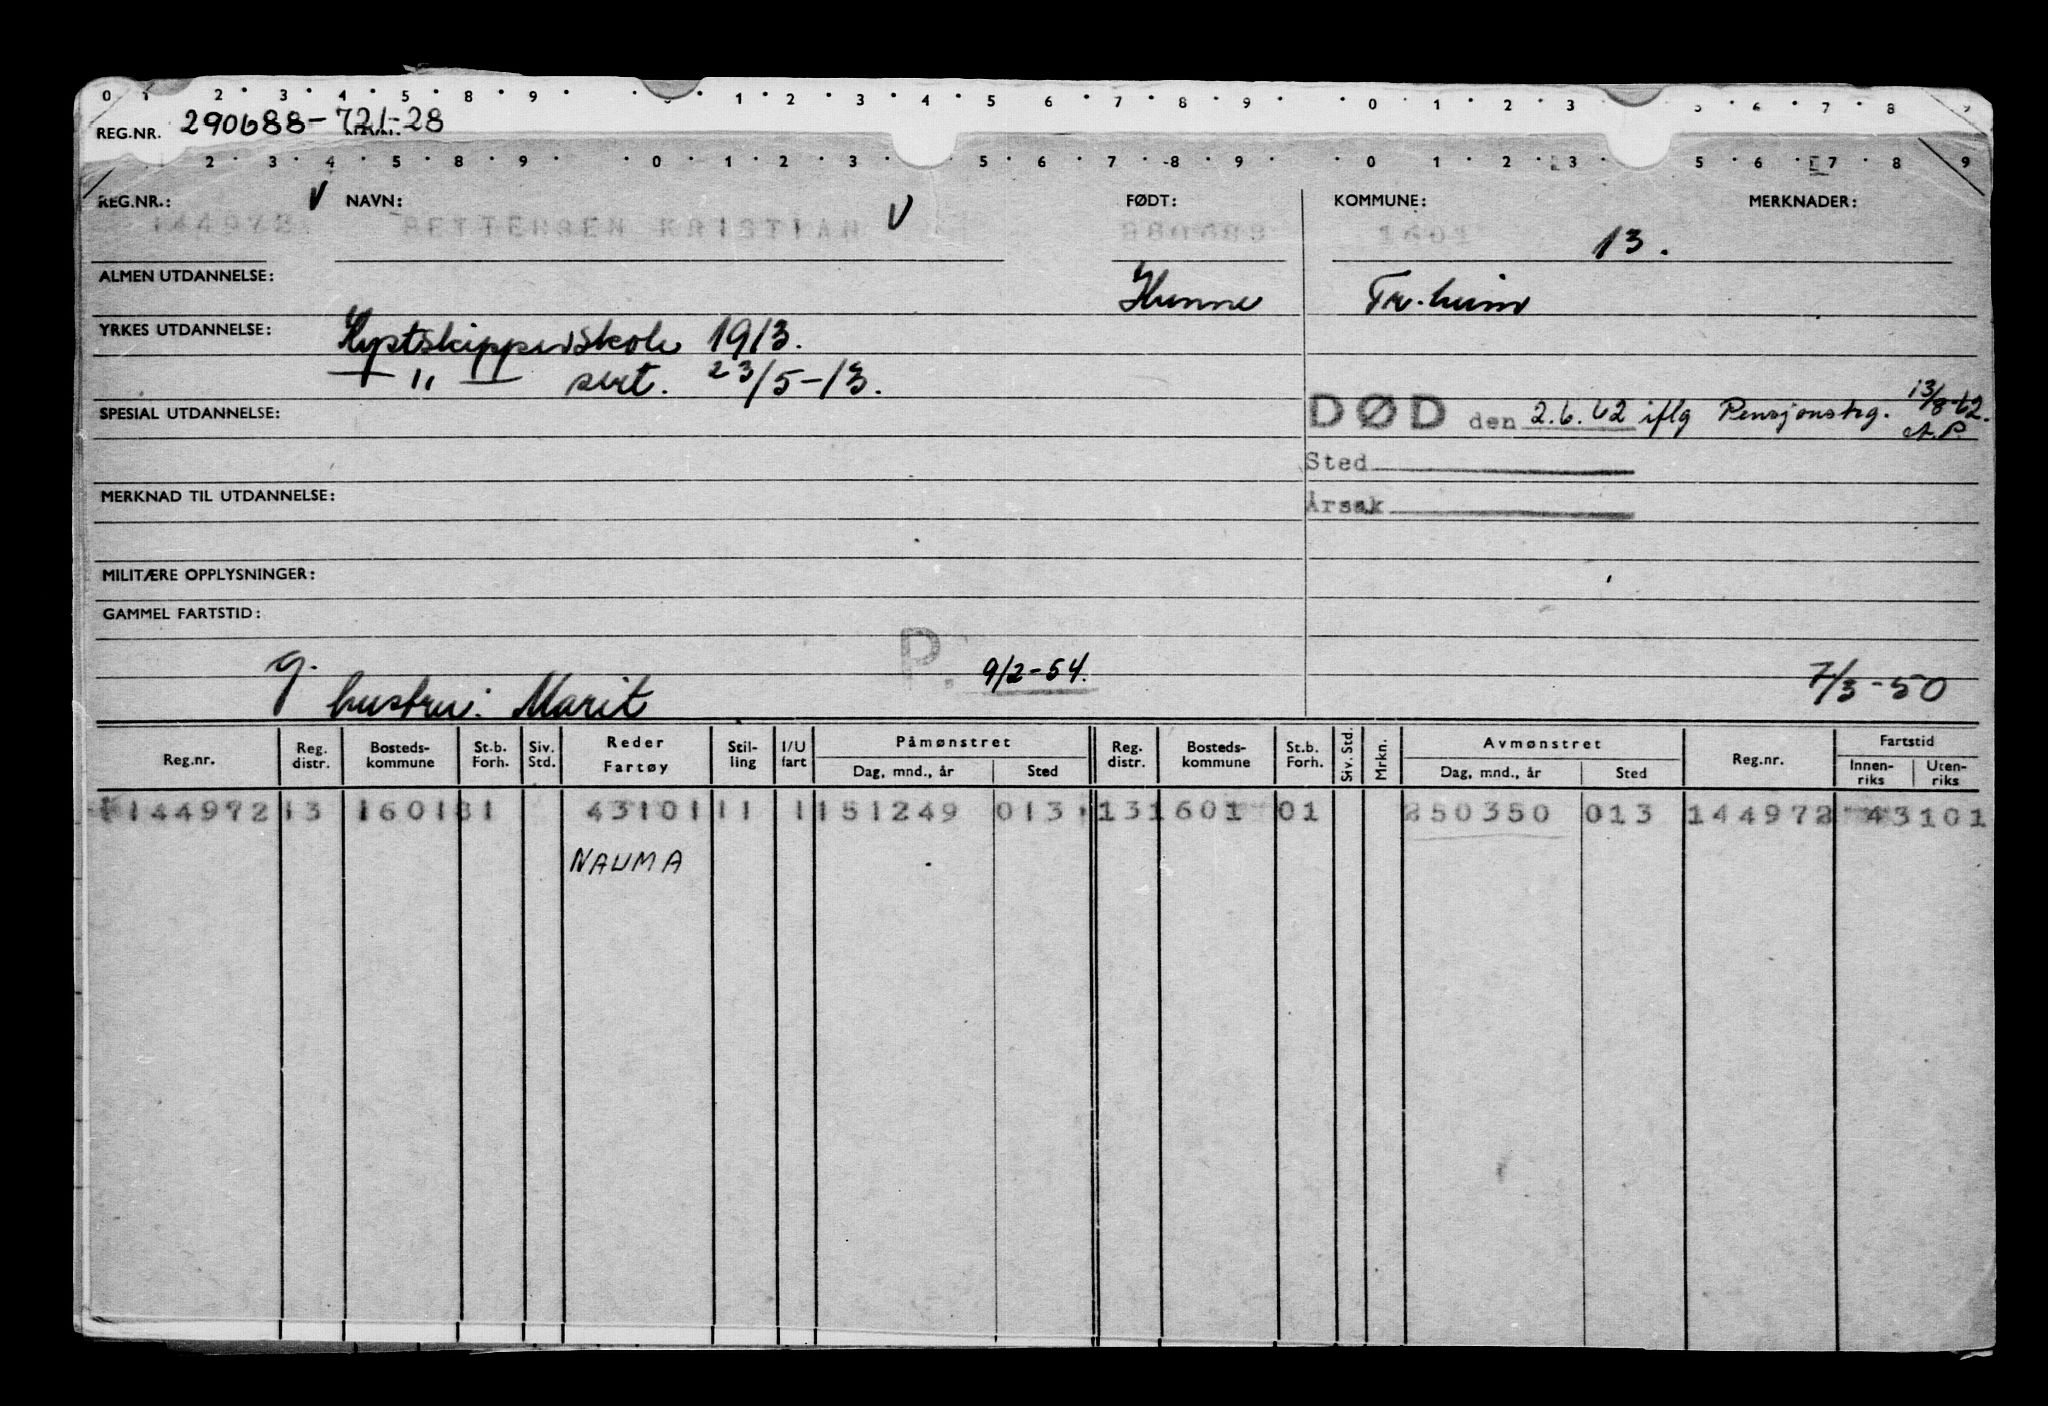 0 1 2 3 4 5 8 9 1 2 3 4 5 6 7 8 9 0 1 2 3 5 6 7 8 9
REG.NR. 290688-721-28
2 3 4 5 8 9 0 1 2 3 5 6 7 8 9 0 1 2 3 5 6 7 8 9
REG.NR.: V NAVN: FØDT: KOMMUNE: MERKNADER:
144972 PETTERSEN KRISTIAN V 1601 13.
ALMEN UTDANNELSE: Tr.heim
YRKES UTDANNELSE: Kystskipperskole 1913.
— " — sert. 23/5-13.
SPESIAL UTDANNELSE: DØD den 2.6.62 iflg Pensjonstrg. 13/8-62. A.P.
Sted
MERKNAD TIL UTDANNELSE: Årsak
MILITÆRE OPPLYSNINGER:
GAMMEL FARTSTID:
g. P. 9/2-54. 7/3-50
hustru: Marit
Reg.nr. Reg. distr. Bosteds-kommune St.b. Forh. Siv. Std. Reder Fartøy Stil-ling I/U fart Påmønstret Dag, mnd., år Sted Reg. distr. Bosteds-kommune St.b. Forh. Siv. Std. Mrkn. Avmønstret Dag, mnd., år Sted Reg.nr. Fartstid Innen-riks Uten-riks
144972 13 1601 81 43101 11 1 151249 013 13 1601 01 250350 013 144972 43101
NAUMA